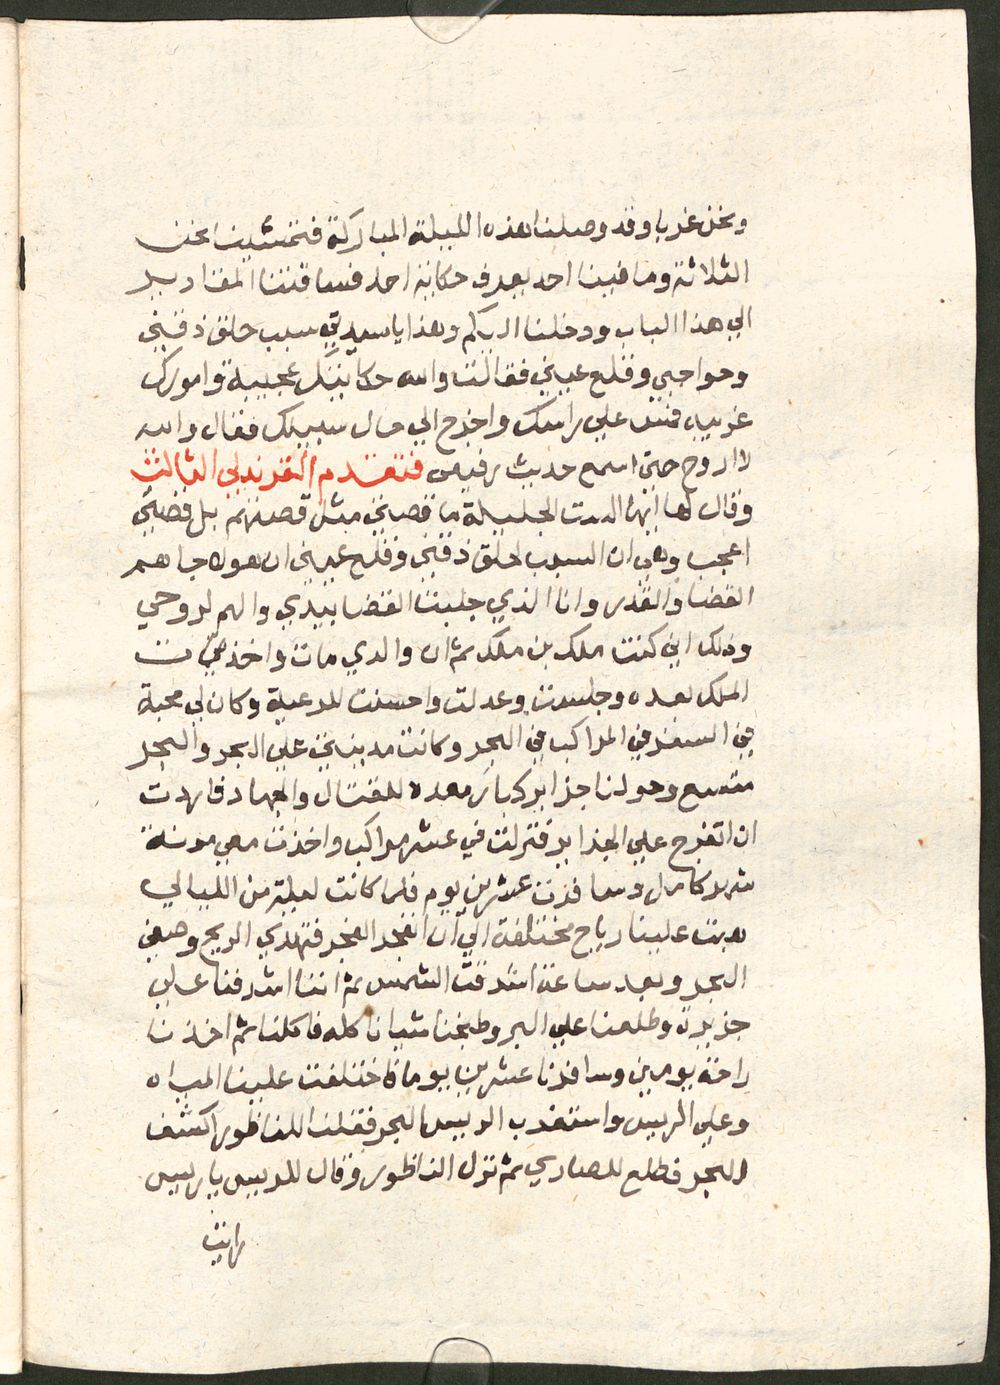 ونحن غربا وقد وصلنا هذه الليلة المباركة فتمشينا نحن
الثلاثة وما فينا احد يعرف حكاية احد فساقتنا المقادير
الي هذا الباب ودخلنا اليكم وهذا يا سيدتي سبب حلق ذقني
وحواجبي وقلع عيني فقالت والله حكايتك عجيبة وامورك
غريبه فمس علي راسك واخرج الي حال سبيلك فقال والله
لا اروح حتى اسمع حديث رفيقي فتقدم القرندلي الثالث
وقال لها ايها الست الجليلة ما قصتي مثل قصتهم بل قصتي
اعجب وهي ان السبب لحلق ذقني وقلع عيني ان هولا جاهم
القضا والقدر وانا الذي جلبت القضا بيدي والهم لروحي
وذلك اني كنت ملك بن ملك ثم ان والدي مات واخذت
الملك بعده وجلست وعدلت واحسنت للرعية وكان لي محبة
في السفر في المراكب في البحر وكانت مدينتي علي البحر والبحر
متسع وحولنا جزاير كبار معده للقتال والجهاد فاردت
ان اتفرج علي الجزاير فنزلت في عشر مراكب واخذت معي مونة
شهر كامل وسافرت عشرين يوم فلما كانت ليلة من الليالي
هبت علينا رياح مختلفة الي ان انفجر الفجر فتهدي الريح وصفي
البحر وبعد ساعة اشرقت الشمس ثم اننا اشرفنا علي
جزيرة وطلعنا علي البر وطبخنا شيا ناكله فاكلنا ثم اخذنا
راحة يومين وسافرنا عشرين يوما فاختلفت علينا المياه
وعلي الريس واستغرب الريس البحر فقلنا للناظور اكشف
البحر فطلع للصاري ثم نزل الناظور وقال للريس يا ريس
رايت